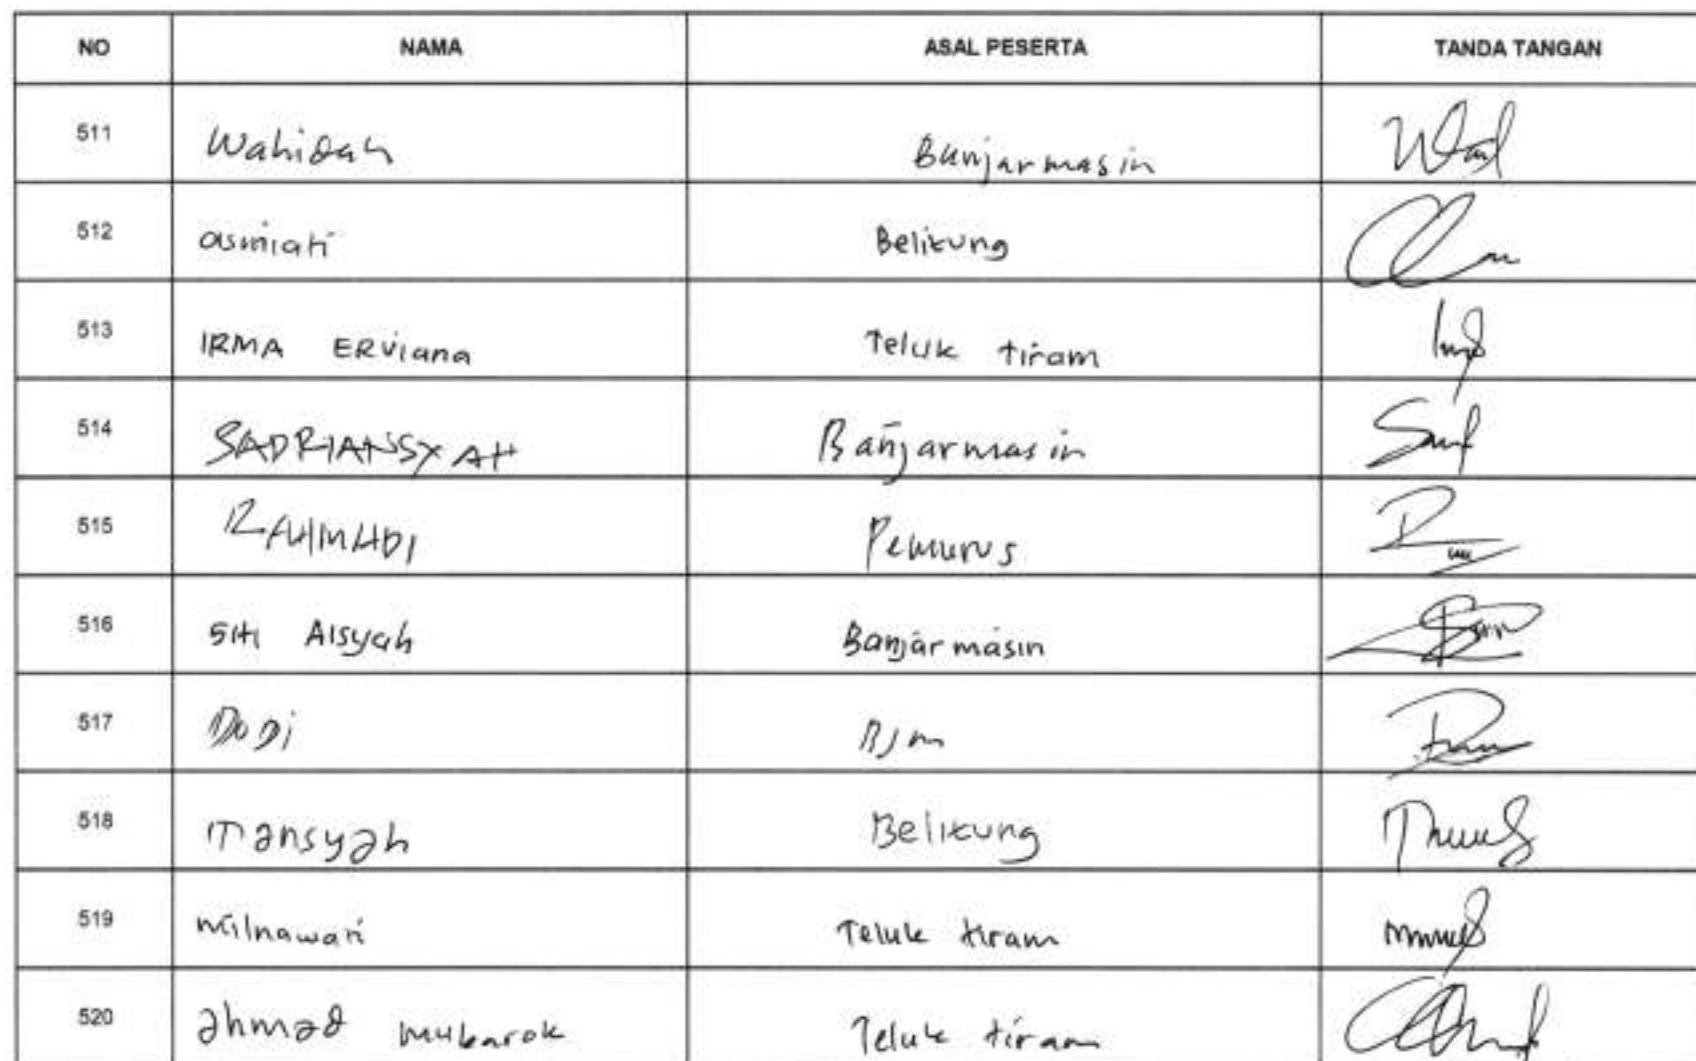 NO NAMA ASAL PESERTA TANDA TANGAN
511 Wahidah Banjarmasin
512 asmiati Belitung
513 IRMA ERviana Teluk tiram
514 SADRIANSYAH Banjarmasin
515 RAHMADI Pemurus
516 Siti Aisyah Banjarmasin
517 DoDi Bjm
518 mansyah Belitung
519 milnawati Teluk tiram
520 ahmad mubarok Teluk tiram